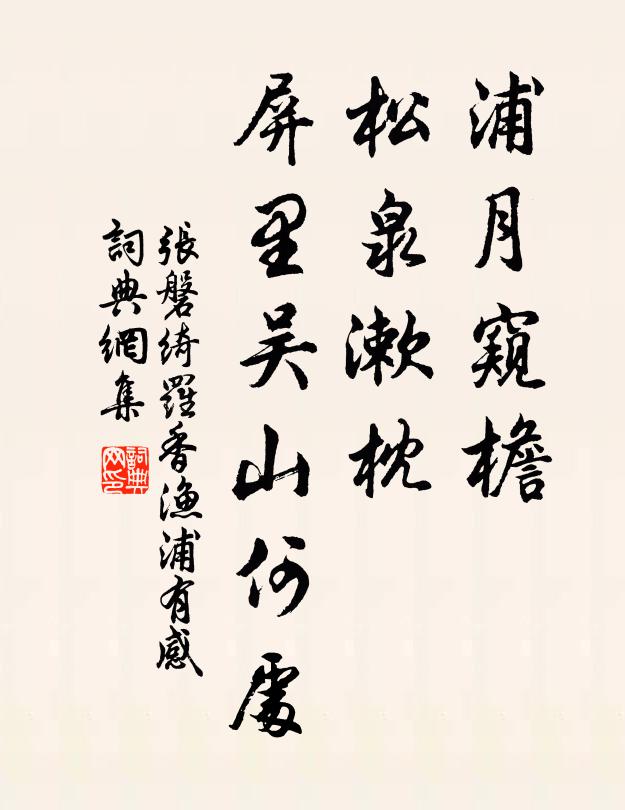 浦月窺檐
松泉漱枕
屏里吴山何處
張磐綺羅香漁浦有感
詞典網集
詞典网印